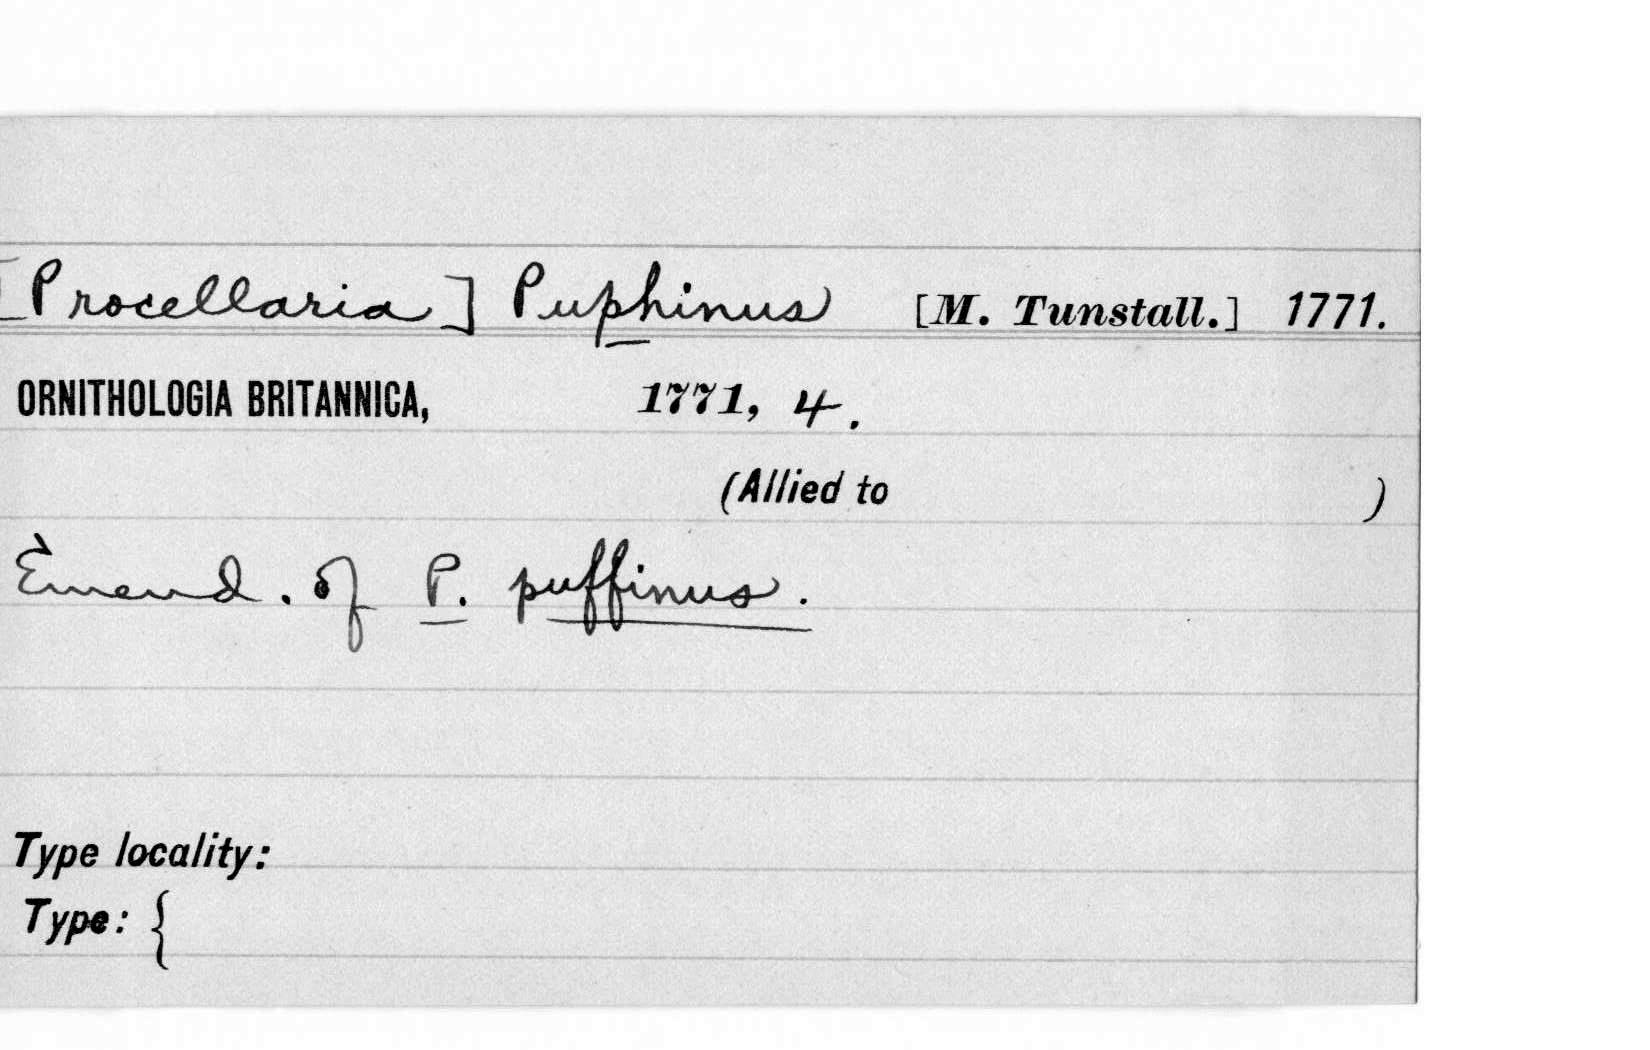 [Procellaria] Puphinus [M. Tunstall.] 1771.
ORNITHOLOGIA BRITANNICA, 1771, 4.
(Allied to )
Emend. of P. puffinus.
Type locality:
Type: {